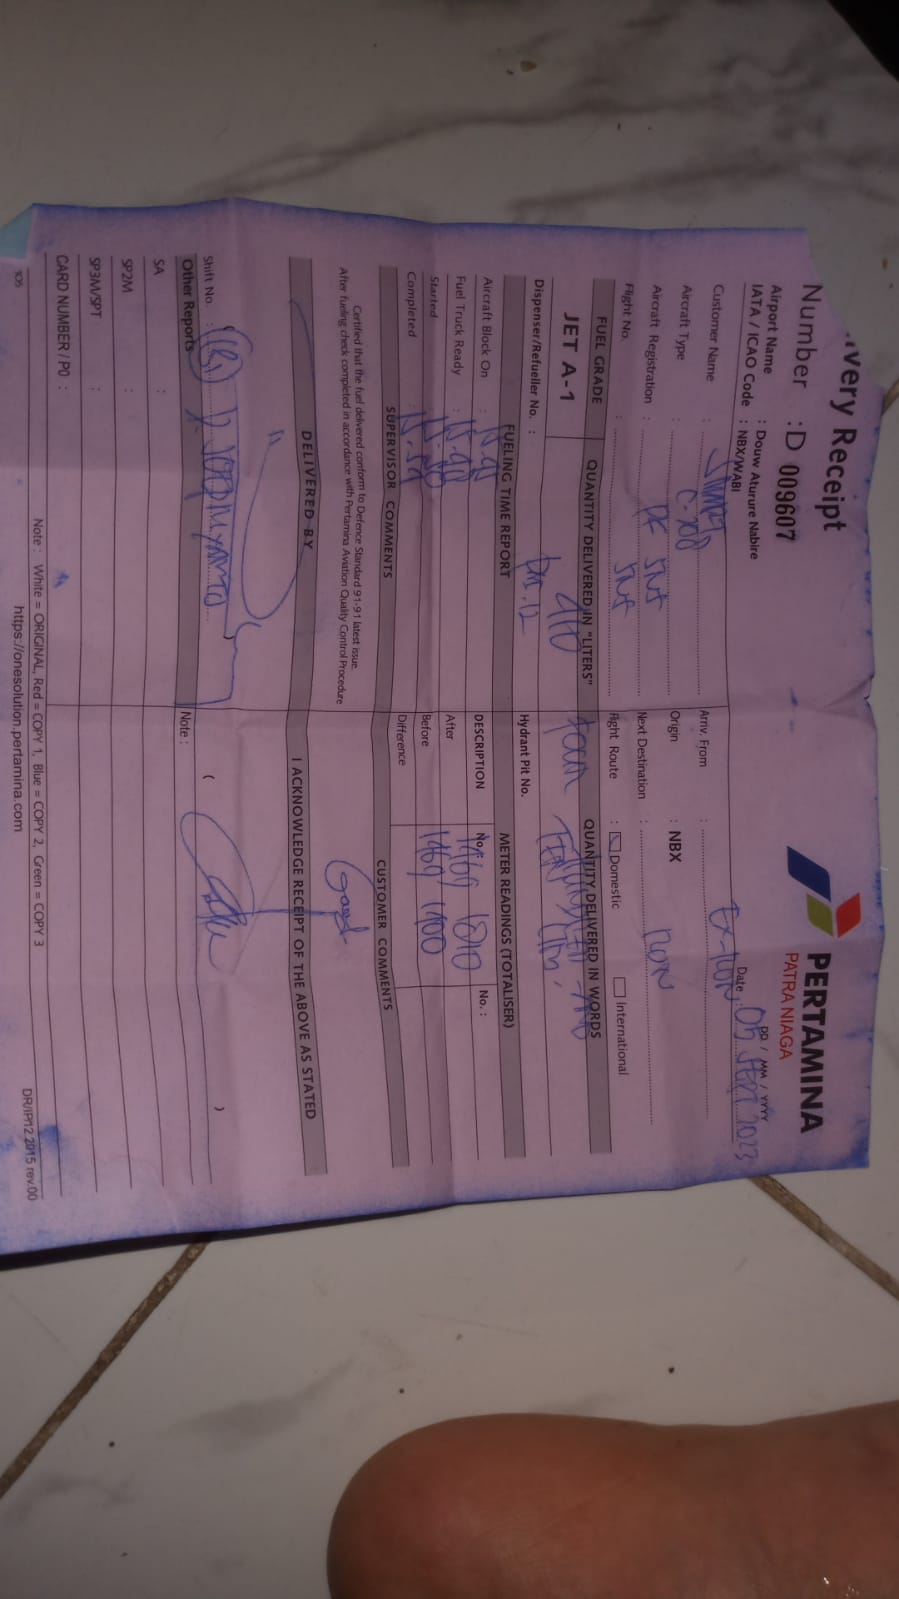 ivery Receipt
PERTAMINA
PATRA NIAGA
Number : D 009607
DD / MM / YYYY
Date : 2023
Airport Name : Douw Aturure Nabire
IATA / ICAO Code : NBX/WABI
Customer Name :
Arriv. From :
Aircraft Type :
Origin : NBX
Aircraft Registration : PK SNF
Next Destination :
Flight No. : SNF
Flight Route : Domestic International
FUEL GRADE
QUANTITY DELIVERED IN "LITERS"
QUANTITY DELIVERED IN WORDS
JET A-1
410
Dispenser/Refueller No. :
Hydrant Pit No.
FUELING TIME REPORT
METER READINGS (TOTALISER)
Aircraft Block On :
DESCRIPTION
No. :
No. :
Fuel Truck Ready :
After
1469 1810
Started :
Before
1469 1400
Completed :
Difference
SUPERVISOR COMMENTS
CUSTOMER COMMENTS
Certified that the fuel delivered conform to Defence Standard 91-91 latest issue.
After fueling check completed in accordance with Pertamina Aviation Quality Control Procedure
Good
DELIVERED BY
I ACKNOWLEDGE RECEIPT OF THE ABOVE AS STATED
Shift No. :
( )
Other Reports
Note :
SA :
SP2M :
SP3M/SPT :
CARD NUMBER / P0 :
Note : White = ORIGINAL, Red = COPY 1, Blue = COPY 2, Green = COPY 3
DR/IP/12 2015 rev.00
https://onesolution.pertamina.com